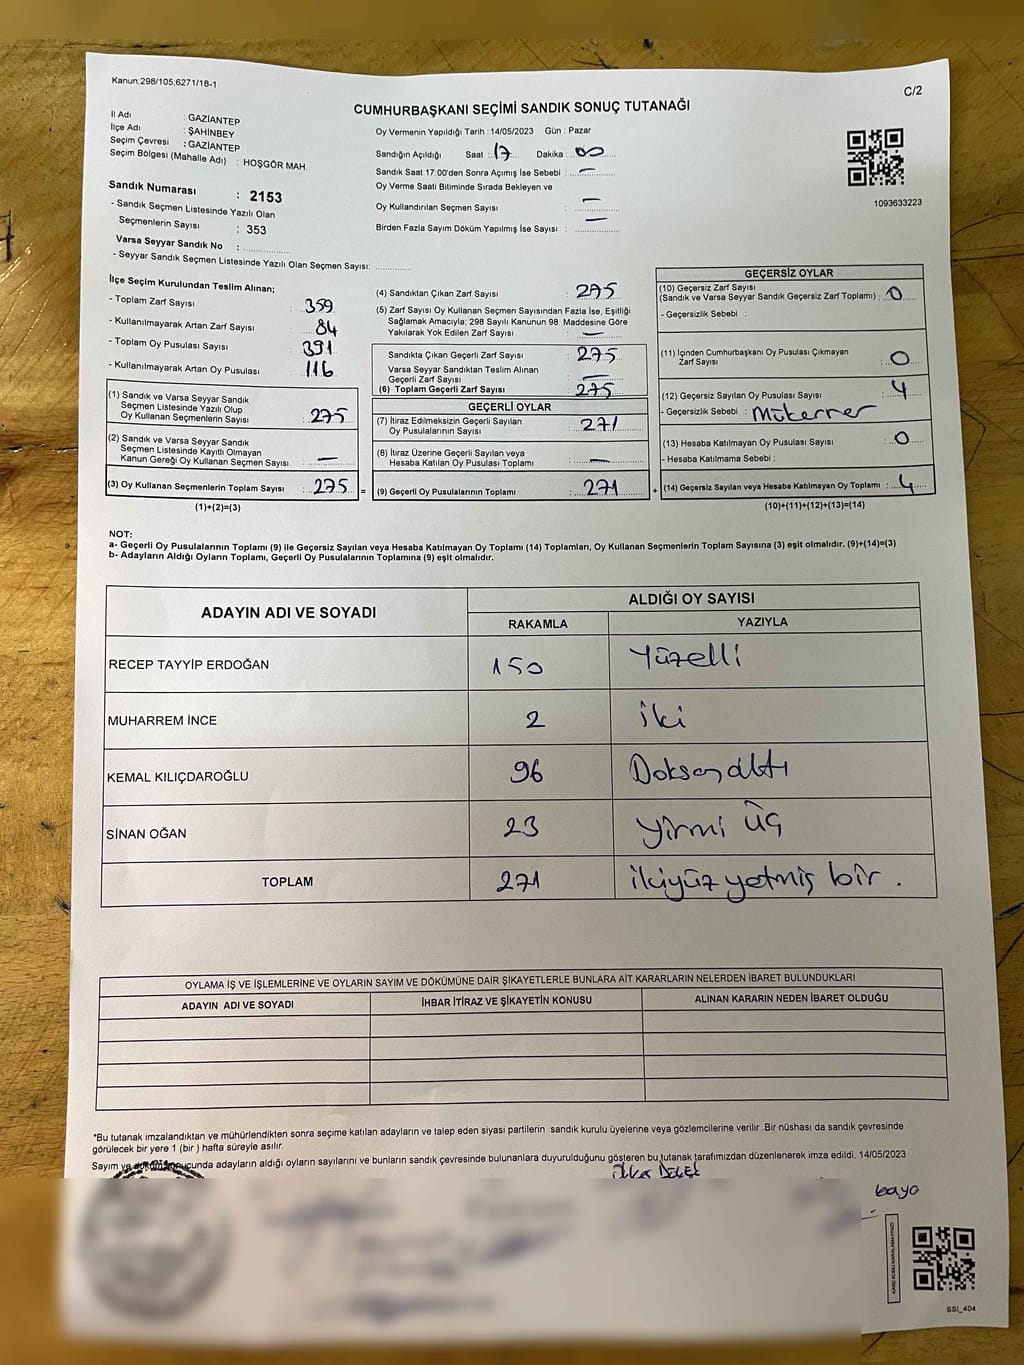 Kanun;298/105,6271/18-1
C/2
CUMHURBAŞKANI SEÇİMİ SANDIK SONUÇ TUTANAĞI
İl Adı : GAZİANTEP
İlçe Adı : ŞAHİNBEY
Seçim Çevresi : GAZİANTEP
Seçim Bölgesi (Mahalle Adı) : HOŞGÖR MAH.
Sandık Numarası : 2153
- Sandık Seçmen Listesinde Yazılı Olan
Seçmenlerin Sayısı : 353
Varsa Seyyar Sandık No :
- Seyyar Sandık Seçmen Listesinde Yazılı Olan Seçmen Sayısı:
Oy Vermenin Yapıldığı Tarih : 14/05/2023 Gün : Pazar
Sandığın Açıldığı Saat : 17 Dakika : 00
Sandık Saat 17:00'den Sonra Açımış İse Sebebi : —
Oy Verme Saati Bitiminde Sırada Bekleyen ve
Oy Kullandırılan Seçmen Sayısı : —
Birden Fazla Sayım Döküm Yapılmış İse Sayısı : —
1093633223
İlçe Seçim Kurulundan Teslim Alınan;
- Toplam Zarf Sayısı : 359
- Kullanılmayarak Artan Zarf Sayısı : 84
- Toplam Oy Pusulası Sayısı : 391
- Kullanılmayarak Artan Oy Pusulası : 116
(1) Sandık ve Varsa Seyyar Sandık
Seçmen Listesinde Yazılı Olup
Oy Kullanan Seçmenlerin Sayısı : 275
(2) Sandık ve Varsa Seyyar Sandık
Seçmen Listesinde Kayıtlı Olmayan
Kanun Gereği Oy Kullanan Seçmen Sayısı : —
(3) Oy Kullanan Seçmenlerin Toplam Sayısı : 275
(1)+(2)=(3)
(4) Sandıktan Çıkan Zarf Sayısı : 275
(5) Zarf Sayısı Oy Kullanan Seçmen Sayısından Fazla İse, Eşitliği
Sağlamak Amacıyla; 298 Sayılı Kanunun 98. Maddesine Göre
Yakılarak Yok Edilen Zarf Sayısı : —
Sandıkta Çıkan Geçerli Zarf Sayısı : 275
Varsa Seyyar Sandıktan Teslim Alınan
Geçerli Zarf Sayısı : —
(6) Toplam Geçerli Zarf Sayısı : 275
GEÇERLİ OYLAR
(7) İtiraz Edilmeksizin Geçerli Sayılan
Oy Pusulalarının Sayısı : 271
(8) İtiraz Üzerine Geçerli Sayılan veya
Hesaba Katılan Oy Pusulası Toplamı : —
= (9) Geçerli Oy Pusulalarının Toplamı : 271
GEÇERSİZ OYLAR
(10) Geçersiz Zarf Sayısı
(Sandık ve Varsa Seyyar Sandık Geçersiz Zarf Toplamı) : 0
- Geçersizlik Sebebi :
(11) İçinden Cumhurbaşkanı Oy Pusulası Çıkmayan
Zarf Sayısı : 0
(12) Geçersiz Sayılan Oy Pusulası Sayısı : 4
- Geçersizlik Sebebi : Mükerrer
(13) Hesaba Katılmayan Oy Pusulası Sayısı : 0
- Hesaba Katılmama Sebebi :
+ (14) Geçersiz Sayılan veya Hesaba Katılmayan Oy Toplamı : 4
(10)+(11)+(12)+(13)=(14)
NOT:
a- Geçerli Oy Pusulalarının Toplamı (9) ile Geçersiz Sayılan veya Hesaba Katılmayan Oy Toplamı (14) Toplamları, Oy Kullanan Seçmenlerin Toplam Sayısına (3) eşit olmalıdır. (9)+(14)=(3)
b- Adayların Aldığı Oyların Toplamı, Geçerli Oy Pusulalarının Toplamına (9) eşit olmalıdır.
ADAYIN ADI VE SOYADI ALDIĞI OY SAYISI
RAKAMLA YAZIYLA
RECEP TAYYİP ERDOĞAN 150 Yüzelli
MUHARREM İNCE 2 iki
KEMAL KILIÇDAROĞLU 96 Doksanaltı
SİNAN OĞAN 23 Yirmi üç
TOPLAM 271 ikiyüz yetmiş bir.
OYLAMA İŞ VE İŞLEMLERİNE VE OYLARIN SAYIM VE DÖKÜMÜNE DAİR ŞİKAYETLERLE BUNLARA AİT KARARLARIN NELERDEN İBARET BULUNDUKLARI
ADAYIN ADI VE SOYADI İHBAR İTİRAZ VE ŞİKAYETİN KONUSU ALINAN KARARIN NEDEN İBARET OLDUĞU
*Bu tutanak imzalandıktan ve mühürlendikten sonra seçime katılan adayların ve talep eden siyasi partilerin sandık kurulu üyelerine veya gözlemcilerine verilir .Bir nüshası da sandık çevresinde
görülecek bir yere 1 (bir ) hafta süreyle asılır.
Sayım ve döküm sonucunda adayların aldığı oyların sayılarını ve bunların sandık çevresinde bulunanlara duyurulduğunu gösteren bu tutanak tarafımızdan düzenlenerek imza edildi. 14/05/2023
SSI_404